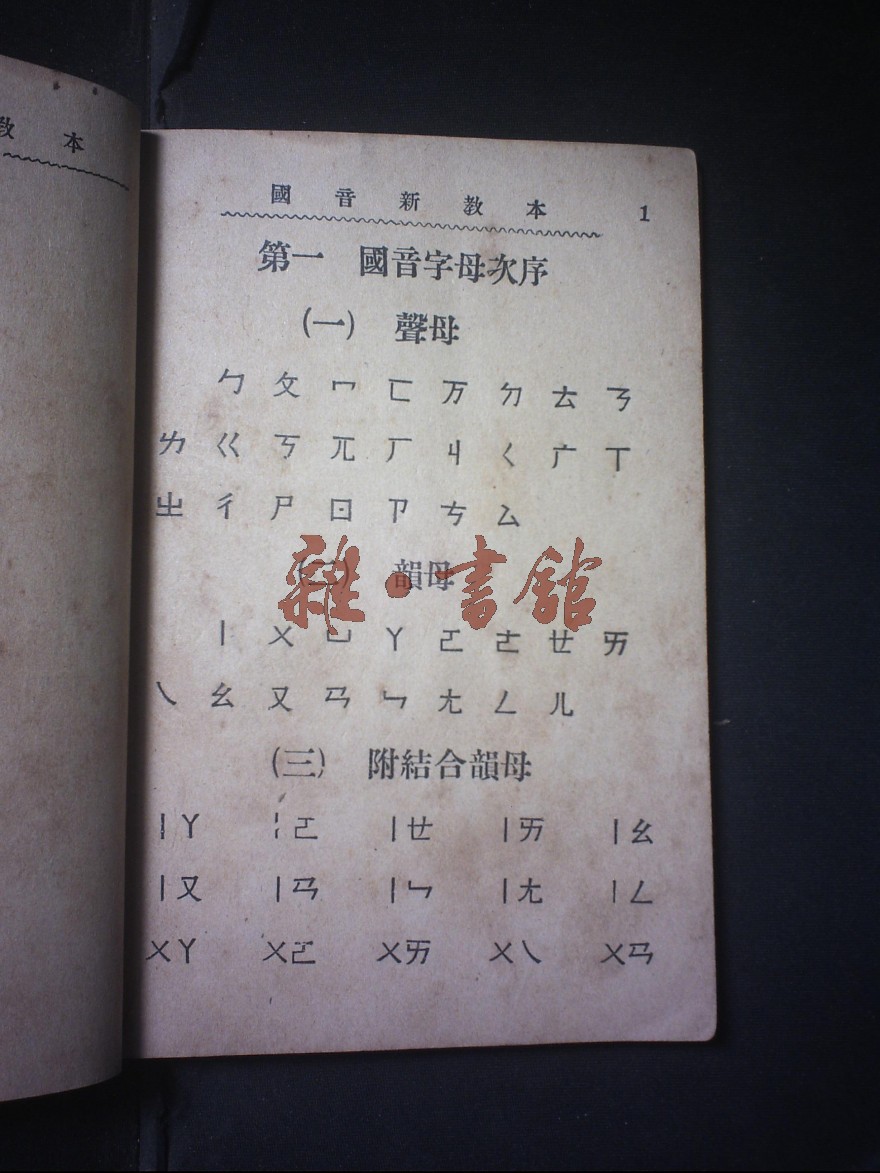 教本
國音新教本 1
第一 國音字母次序
(一) 聲母
ㄅ ㄆ ㄇ ㄈ ㄪ ㄉ ㄊ ㄋ
ㄌ ㄍ ㄎ ㄫ ㄏ ㄐ ㄑ ㄬ ㄒ
ㄓ ㄔ ㄕ ㄖ ㄗ ㄘ ㄙ
(二) 韻母
ㄧ ㄨ ㄩ ㄚ ㄛ ㄜ ㄝ ㄞ
ㄟ ㄠ ㄡ ㄢ ㄣ ㄤ ㄥ ㄦ
(三) 附結合韻母
ㄧㄚ ㄧㄛ ㄧㄝ ㄧㄞ ㄧㄠ
ㄧㄡ ㄧㄢ ㄧㄣ ㄧㄤ ㄧㄥ
ㄨㄚ ㄨㄛ ㄨㄞ ㄨㄟ ㄨㄢ
雜·書館